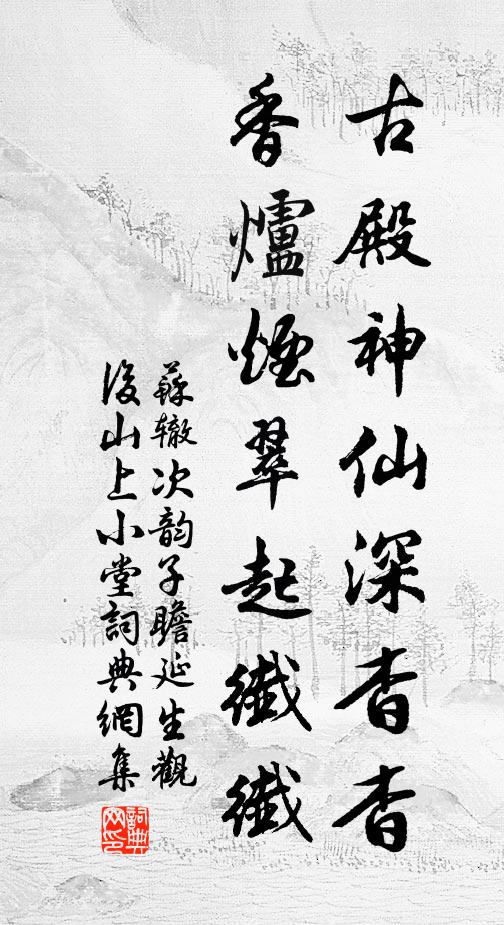 古殿神仙深杳杳
香爐煙翠起纖纖
蘇轍次韵子瞻延生觀
後山上小堂詞典網集
詞典网印